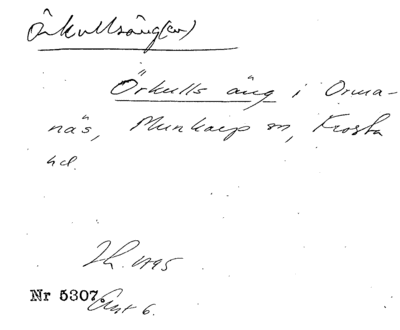 Örkullsäng(en)
Örkulls äng i Orma-
näs, Munkarp sn, Frosta
hd.
1995
Nr 5307.
6.